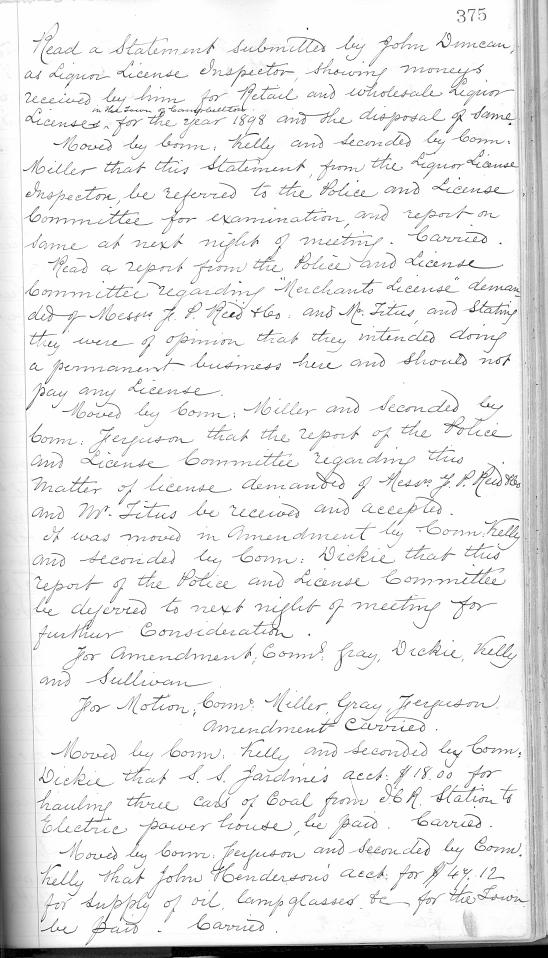 375
Read a Statement submitted by John Duncan,
as Liquor License Inspector, showing moneys
received by him for Retail and wholesale Liquor
in the Town of Campbellton
Licenses for the year 1898 and the disposal of same.
Moved by Conn: Kelly and seconded by Conn:
Miller that this Statement, from the Liquor License
Inspector, be referred to the Police and License
Committee for examination, and report on
same at next night of meeting. Carried.
Read a report from the Police and License
Committee regarding "Merchants License" deman-
ded of Messrs J. P. Reid & Co. and Mr. Titus, and Stating
they were of opinion that they intended doing
a permanent business here and should not
pay any License.
Moved by Conn: Miller and seconded by
Conn: Ferguson that the report of the Police
and License Committee regarding this
matter of license demanded of Messrs J. P. Reid & Co
and Mr. Titus be received and accepted.
It was moved in amendment by Conn: Kelly
and seconded by Conn: Dickie that this
report of the Police and License Committee
be deferred to next night of meeting for
further Consideration.
For Amendment; Conns. Gray, Dickie, Kelly
and Sullivan
For Motion; Conns. Miller, Gray, Ferguson
Amendment Carried.
Moved by Conn: Kelly and seconded by Conn:
Dickie that S. S. Jardine's acct: $18.00 for
hauling three cars of Coal from I.C.R. Station to
Electric power house, be paid. Carried.
Moved by Conn: Ferguson and seconded by Conn.
Kelly that John Henderson's acct: for $47.12
for supply of oil, lampglasses &c for the Town
be paid. Carried.